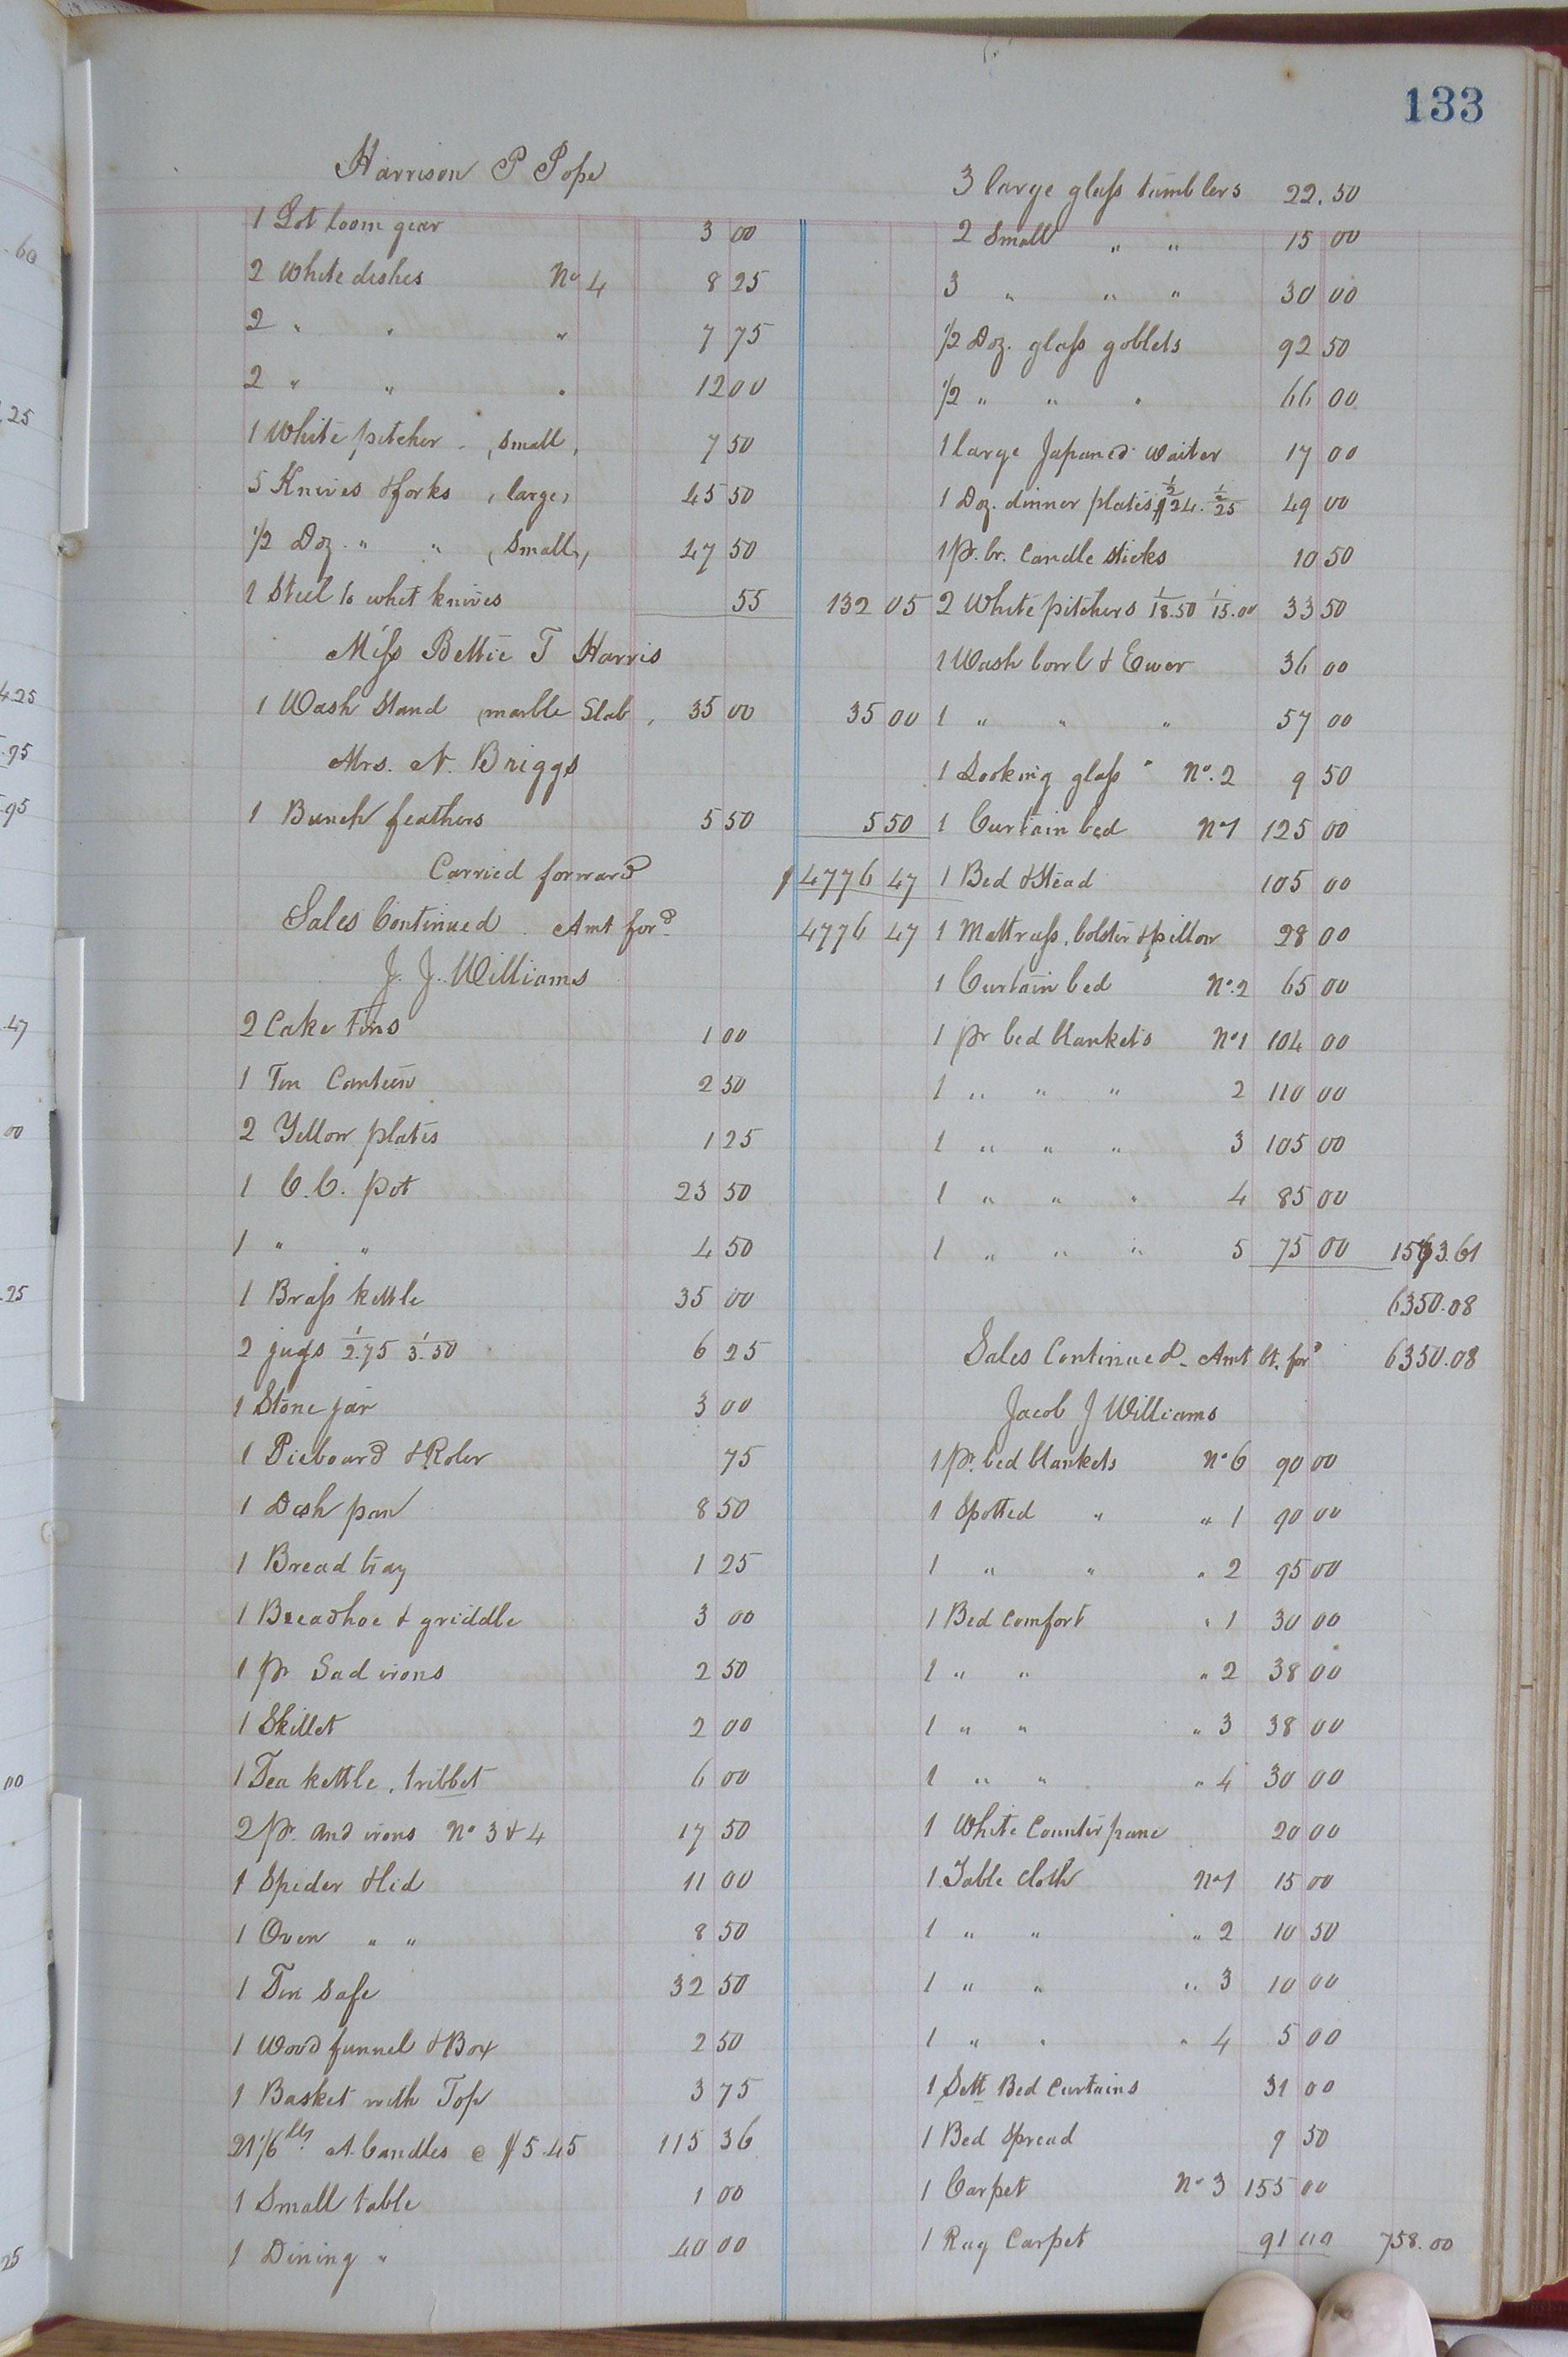 133
Harrison P Pope
1 Lot loom gear 3 00
2 White dishes No 4 8 25
2 " " " 7 75
2 " " " 12 00
1 White pitcher (small) 7 50
5 Knives & forks (large) 45 50
1/2 Doz. " " (small) 47 50
1 Steel to whet knives 55 132 05
Miss Bettie T Harris
1 Wash Stand (marble Slab) 35 00 35 00
Mrs. N. Briggs
1 Bunch feathers 5 50 5 50
Carried forward $4776 47
Sales Continued Amt ford 4776 47
J. J. Williams
2 Cake Tins 1 00
1 Tin Canteen 2 50
2 Yellow plates 1 25
1 C. C. pot 23 50
1 " " 4 50
1 Brass kettle 35 00
2 jugs 1/2.75 1/3.50 6 25
1 Stone jar 3 00
1 Pieboard & Roler 75
1 Dish pan 8 50
1 Bread tray 1 25
1 Breadhoe & griddle 3 00
1 pr Sad irons 2 50
1 Skillet 2 00
1 Tea kettle, tribbet 6 00
2 pr. and irons No 3 & 4 17 50
1 Spider & lid 11 00
1 Oven " " 8 50
1 Tin Safe 32 50
1 Wood funnel & Box 2 50
1 Basket with Top 3 75
21 1/6 lbs A. Candles @ $5.45 115 36
1 Small table 1 00
1 Dining " 40 00
3 large glass tumblers 22.50
2 Small " " 15 00
3 " " " 30 00
1/2 Doz. glass goblets 92 50
1/2 " " " 66 00
1 large Japaned waiter 17 00
1 Doz. dinner plates $ 1/2/24. 1/2/25 49 00
1 pr. br. Candle sticks 10 50
2 White pitchers 1/18.50 1/15.00 33 50
1 Wash bowl & Ewer 36 00
1 " " " 57 00
1 Looking glass No. 2 9 50
1 Curtain bed No 1 125 00
1 Bed & Stead 105 00
1 Mattrass, bolster & pillow 28 00
1 Curtain bed No. 2 65 00
1 pr bed blankets No 1 104 00
1 " " " 2 110 00
1 " " " 3 105 00
1 " " " 4 85 00
1 " " " 5 75 00 1573.61
6350.08
Sales Continued. Amt bt. ford 6350.08
Jacob J Williams
1 pr. bed blankets No 6 90 00
1 Spotted " " 1 90 00
1 " " " 2 95 00
1 Bed Comfort " 1 30 00
1 " " " 2 38 00
1 " " " 3 38 00
1 " " " 4 30 00
1 White Counterpane 20 00
1 Table Cloth No 1 15 00
1 " " " 2 10 50
1 " " " 3 10 00
1 " " " 4 5 00
1 Sett Bed Curtains 31 00
1 Bed Spread 9 50
1 Carpet No 3 155 00
1 Rag Carpet 91 00 758.00